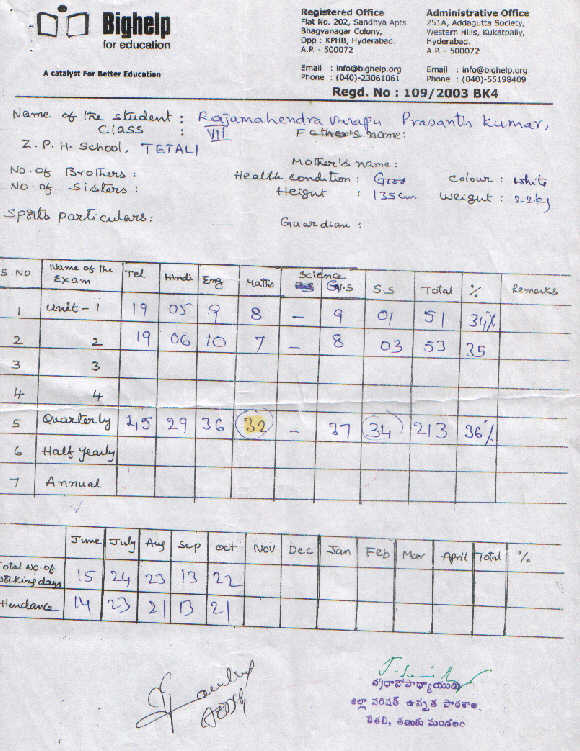 Bighelp
for education
A catalyst For Better Education
Registered Office
Flat No. 202, Sandhya Apts
Bhagyanagar Colony,
Opp : KPHB, Hyderabad.
A.P. - 500072
Email : info@bighelp.org
Phone : (040)-23061061
Administrative Office
251A, Addagutta Society,
Western Hills, Kukatpally,
Hyderabad.
A.P. - 500072
Email : info@bighelp.org
Phone : (040)-55198409
Regd. No : 109/2003 BK4
Name of the student : Rajamahendra varapu Prasanth Kumar,
Class : VII Father's name:
Z. P. H. School, TETALI
Mother's name :
No. of Brothers : Health condition : Good Colour : white
No. of Sisters : Height : 135cm Weight : 22kg
Sports particulars: Guardian :
S. NO Name of the Exam Tel Hindi Eng Maths Science N.S S.S Total % Remarks
1 Unit - 1 19 05 9 8 - 9 01 51 34%
2 2 19 06 10 7 - 8 03 53 35
3 3
4 4
5 Quarterly 45 29 36 32 - 37 34 213 36%
6 Half yearly
7 Annual
June July Aug Sep Oct Nov Dec Jan Feb Mar April Total %
Total No of working days 15 24 23 13 22
Attendance 14 23 21 13 21
ప్రధానోపాధ్యాయుడు
జిల్లా పరిషత్ ఉన్నత పాఠశాల
తేతలి, తణుకు మండలం